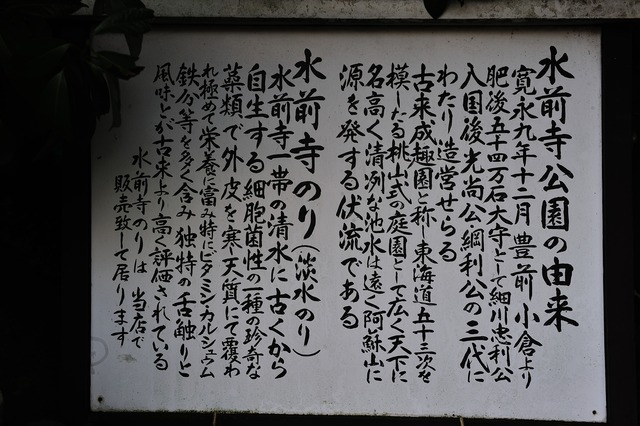 水前寺公園の由来
寛永九年十二月豊前小倉より
肥後五十四万石大守として細川忠利公
入国後光尚公綱利公の三代に
わたり造営せらる
古来成趣園と称し東海道五十三次を
模したる桃山式の庭園として広く天下に
名高く清冽な池水は遠く阿蘇山に
源を発する伏流である
水前寺のり(淡水のり)
水前寺一帯の清水に古くから
自生する細胞菌性の一種の珍奇な
藻類で外皮を寒天質にて覆わ
れ極めて栄養に富み特にビタミン・カルシュウム
鉄分等を多く含み独特の舌触りと
風味とが古来より高く評価されている
水前寺のりは当店で
販売致して居ります